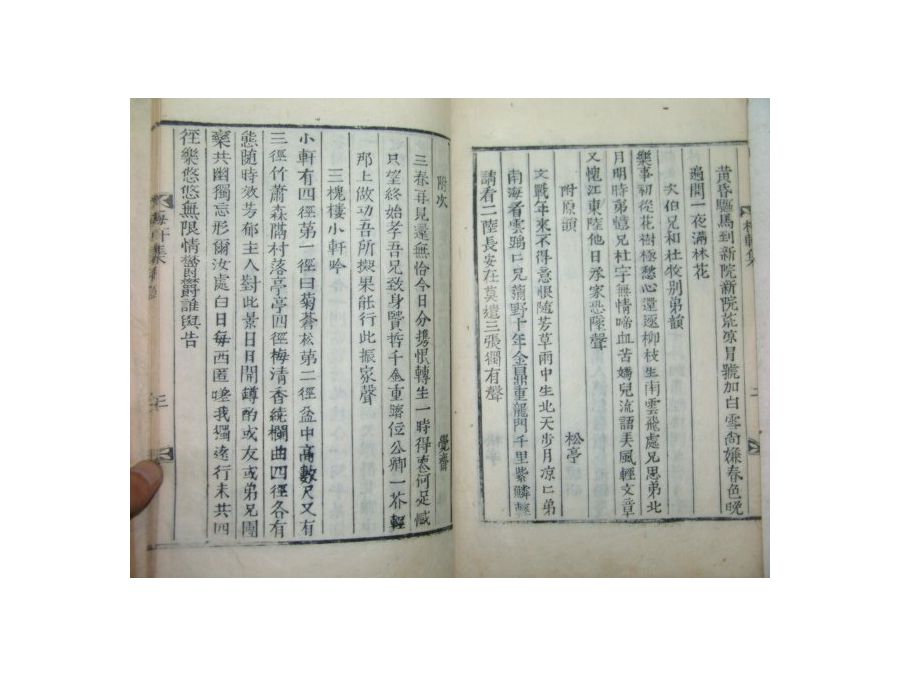 黃昏驅馬到新院新院荒凉冒號加白雪尙嫌春色晚
遍開一夜滿林花
次伯兄和杜牧別弟韻
樂事初從花樹極愁心還逐柳枝生南雲飛處兄思弟北
月明時弟憶兄杜宇無情啼血苦嬌兒流語美風輕文章
又愧江東陸他日承家恐墜聲
附原韻 松亭
文戰年來不得意恨隨芳草雨中生北天步月凉凉弟
南海看雲踽踽兄蒲野十年金鼎重龍門千里紫鱗輕
請看二陸長安在莫遣三張獨有聲
附次 覺齋
三春再見還無恰今日分携惧轉生一時得悳何足慽
只望終始孝吾兄致身賢哲千金重躋位公卿一芥輕
那上做功吾所擬果能行此振家聲
三槐樓小軒吟
小軒有四徑第一徑曰菊蒼松第二徑盆中高數尺又有
三徑竹蕭森隣村落亭亭四徑梅清香繞欄曲四徑各有
態隨時效芳郁主人對此景日日開罇酌或友或弟兄團
欒共幽獨忘形爾汝處白日每西匿嗟我獨遠行未共四
徑樂悠悠無限情欝欝誰與告
梅軒集
三